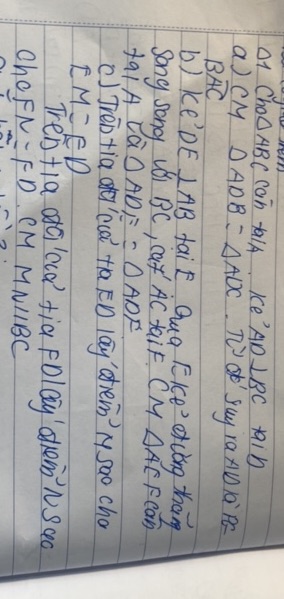 Δ1 Cho ΔABC cân tại A. Kẻ AD⊥BC tại D
a) CM ΔADB = ΔADC. Từ đó suy ra AD là PG
BAC
b) Kẻ DE ⊥AB tại E Qua E kẻ đường thẳng
song song với BC, cắt AC tại F. CM ΔAEF cân
tại A và ΔADE = ΔADF
c) Trên tia đối của tia ED lấy điểm M sao cho
EM = ED
Trên tia đối của tia FD lấy điểm N sao
cho FN = FD. CM MN//BC